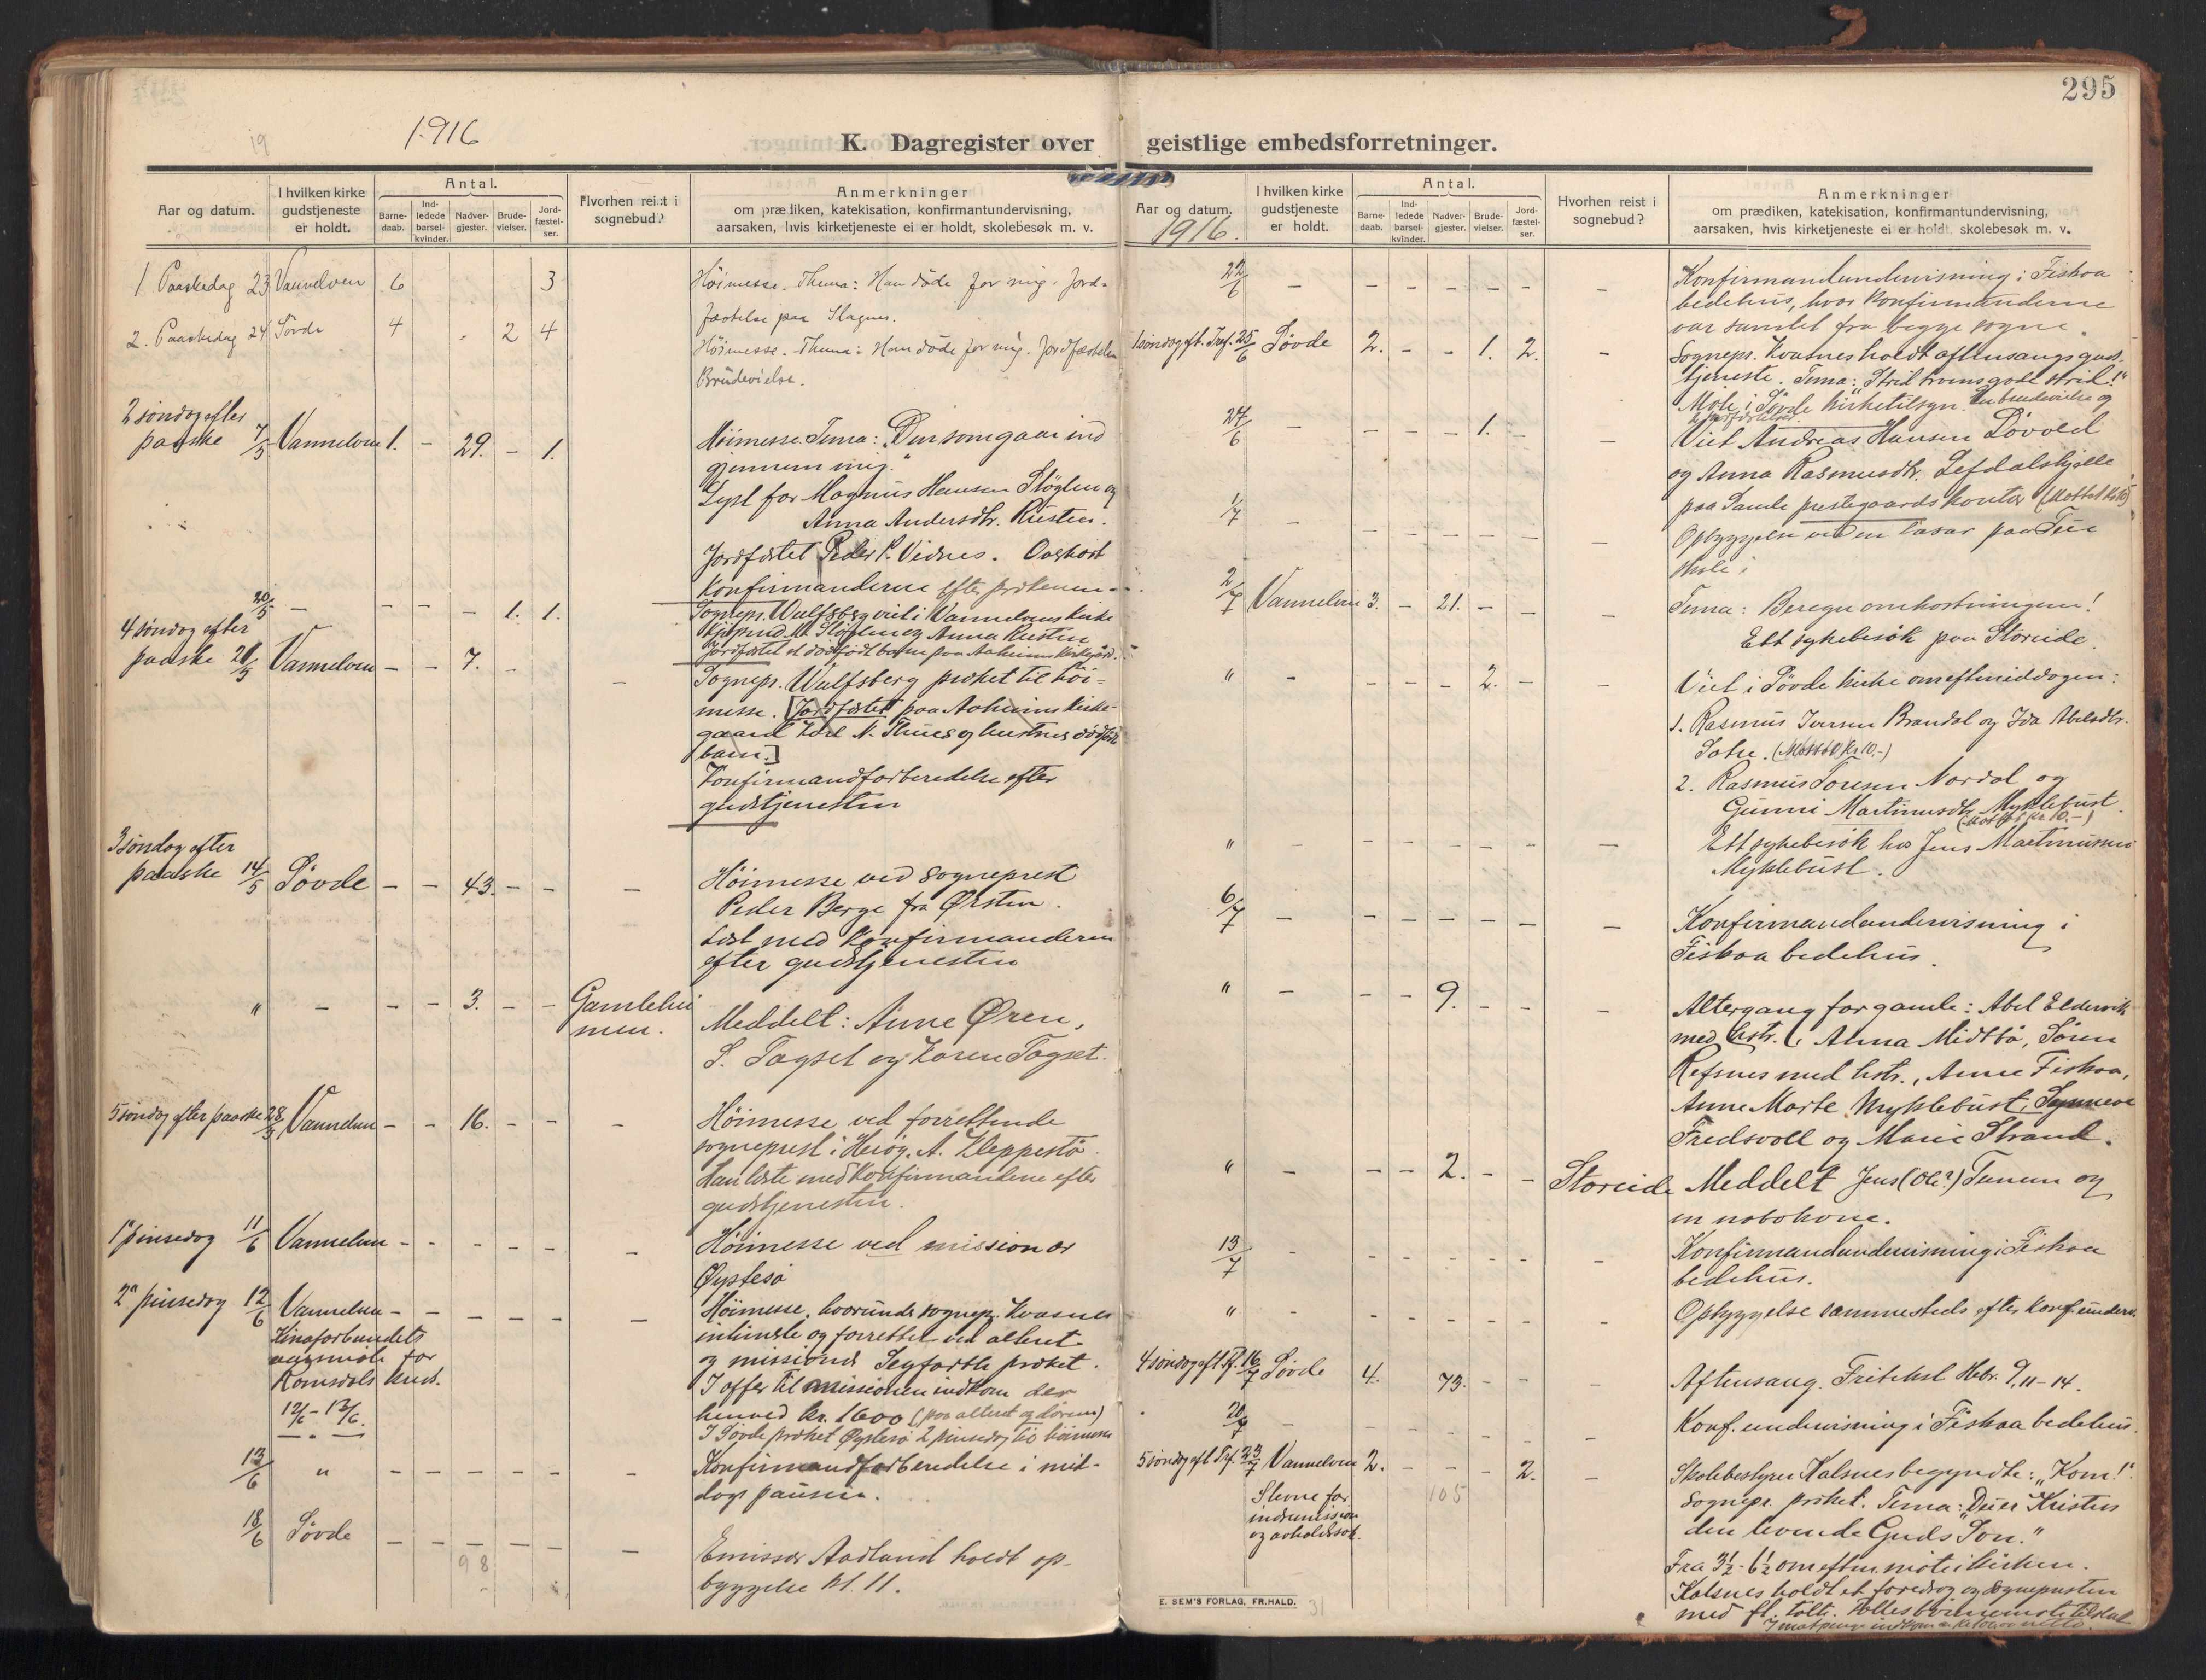 295
1916
K. Dagregister over geistlige embedsforretninger.
Aar og datum.
I hvilken kirke gudstjeneste er holdt.
Antal.
Barnedaab.
Indledede barselkvinder.
Nadvergjester.
Brudevielser.
Jordfæstelser.
Hvorhen reist i sognebud?
Anmerkninger
om prædiken, katekisation, konfirmantundervisning,
aarsaken, hvis kirketjeneste ei er holdt, skolebesøk m. v.
1 Paaskedag 23 Vannelven 6 3 Höimesse. Thema: Han döde for mig. Jord-
fæstelse paa Slagnes.
2. Paaskedag 24 Sövde 4 2 4 Höimesse. Thema: Han döde for mig. Jordfæstelse
Brüdevielse.
2 söndag efter
paaske 7/5 Vannelven 1. - 29. - 1. Höimesse. Tema: "Den som gaar ind
gjennem mig."
Lyst for Magnus Hansen Slögten og
Anna Andersdtr. Rusten.
Jordfæstet Peder P. Vidnes. Overhört
Konfirmanderne efter prækenen.
20/5 - - - - 1. 1. Sognepr. Wulfsberg viet i Vannelvens kirke
Anna Rusten
Jordfæstet et dödfödt barn paa Aaheims kirkegård.
4 söndag efter
paaske 21/5 Vannelven - - 7. - - Sognepr. Wulfsberg præket til höi-
messe. [Jordfæstet paa Aaheims kirke-
gaard N. Thues og hustrus dödfödte
barn.]
Konfirmandforberedelse efter
gudstjenesten
3 söndag efter
paaske 14/5 Sövde - - 43. - - - Höimesse ved sogneprest
Peder Berge fra Ørsten.
Læst med Konfirmanderne
efter gudstjenesten
" - - - 3. - - Gamlehei
men. Meddelt: Anne Øren,
S. Tagset og Karen Tagset.
5 söndag efter paaske 28/5 Vannelven - - 16. - - - Höimesse ved forrettende
sogneprest i Heröy. A. Kleppestö.
Han læste med konfirmandene efter
gudstjenesten.
1ste pinsedag 11/6 Vannelven - - - - - - Höimesse ved missionær
Øystesö
2den pinsedag 12/6 Vannelven - - - - - - Höimesse, hvorunder sognepr. Kvasnes
intimerte og forrettet ved alteret
og missionær Seyfarth præket.
Kinaforbundets
aarsmöte for
Romsdals kreds.
12/6 - 13/6.
I offer til missionen indkom der
henved kr. 1600 (paa alteret og dörene)
I Sövde præket Øystesö 2 pinsedag til höimesse
13/6 " - - - - - - Konfirmandforberedelse i mid-
dags pausen.
18/6 Sövde - - - - - - Emissær Aadland holdt op-
byggelse kl. 11.
98
Aar og datum.
1916.
I hvilken kirke gudstjeneste er holdt.
Antal.
Barnedaab.
Indledede barselkvinder.
Nadvergjester.
Brudevielser.
Jordfæstelser.
Hvorhen reist i sognebud?
Anmerkninger
om prædiken, katekisation, konfirmantundervisning,
aarsaken, hvis kirketjeneste ei er holdt, skolebesøk m. v.
22/6 - - - - - - - Konfirmandundervisning i Fiskaa
bedehus, hvor konfirmanderne
var samlet fra begge sogne.
1 söndag eft. Tref. 25/6 Sövde 2. - - 1. 2. - Sognepr. Kvasnes holdt aftensangsguds-
tjeneste. Tema: "Strid troens gode strid!"
Möte i Sövde kirketilsyn. En brudevielse og
2 jordfæstelser.
27/6 - - - - 1. - - Viet Andreas Hansen Lövold
og Anna Rasmusdtr. Lefdalskjelle
paa Sande prestegaards kontor
1/7 - - - - - - - Opbyggelse ved en basar paa
skole.
2/7 Vannelven 3. - 21. - - - Tema: Beregn omkostningen!
Ett sykebesök paa Storeide.
" - - - - 2. - - Viet i Sövde kirke om eftermiddagen:
1. Rasmus Iversen Brandal og Ida Abelsdtr.
(Mottok kr. 10.-)
2. Rasmus Nordal og
Gunni Martinusdtr. Myklebust.
(Mottok kr. 10.-)
" - - - - - - - Ett sykebesök hos Jens Martinussen
Myklebust.
6/7 - - - - - - - Konfirmandundervisning i
Fiskaa bedehus.
" - - - 9. - - - Altergang for gamle: Abel Eldervik
med hstr., Anna Midtbö, Sören
Refsnes med hstr., Anne Fiskaa,
Anne Marte Myklebust, Synneve
Fredsvoll og Marie Strand.
" - - - 2. - - Storeide Meddelt Jens (Ole?) Tunem og
en nabokone.
13/7 - - - - - - - Konfirmandundervisning i Fiskaa
bedehus.
" - - - - - - - Opbyggelse sammesteds efter konf. underv.
4 söndag eft. Tr. 16/7 Sövde 4. 73. - - - Aftensang. Fritekst Hebr. 9, 11-14.
20/7 - - - - - - - Konf. undervisning i Fiskaa bedehus.
5 söndag eft. Tref. 23/7 Vannelven 2. - - - 2. - Skolebestyrer Kalsnes begyndte: "Kom!"
Sognepr. præket. Tema: "Du er Kristus
den levende Guds Sön."
Stevne for
indremission
og avholdssak.
105
Fra 3½-6½ om efterm. möte i kirken.
Kalsnes holdt et foredrag og sognepresten
med fl. talte.
E. SEM'S FORLAG, FR.HALD.
31